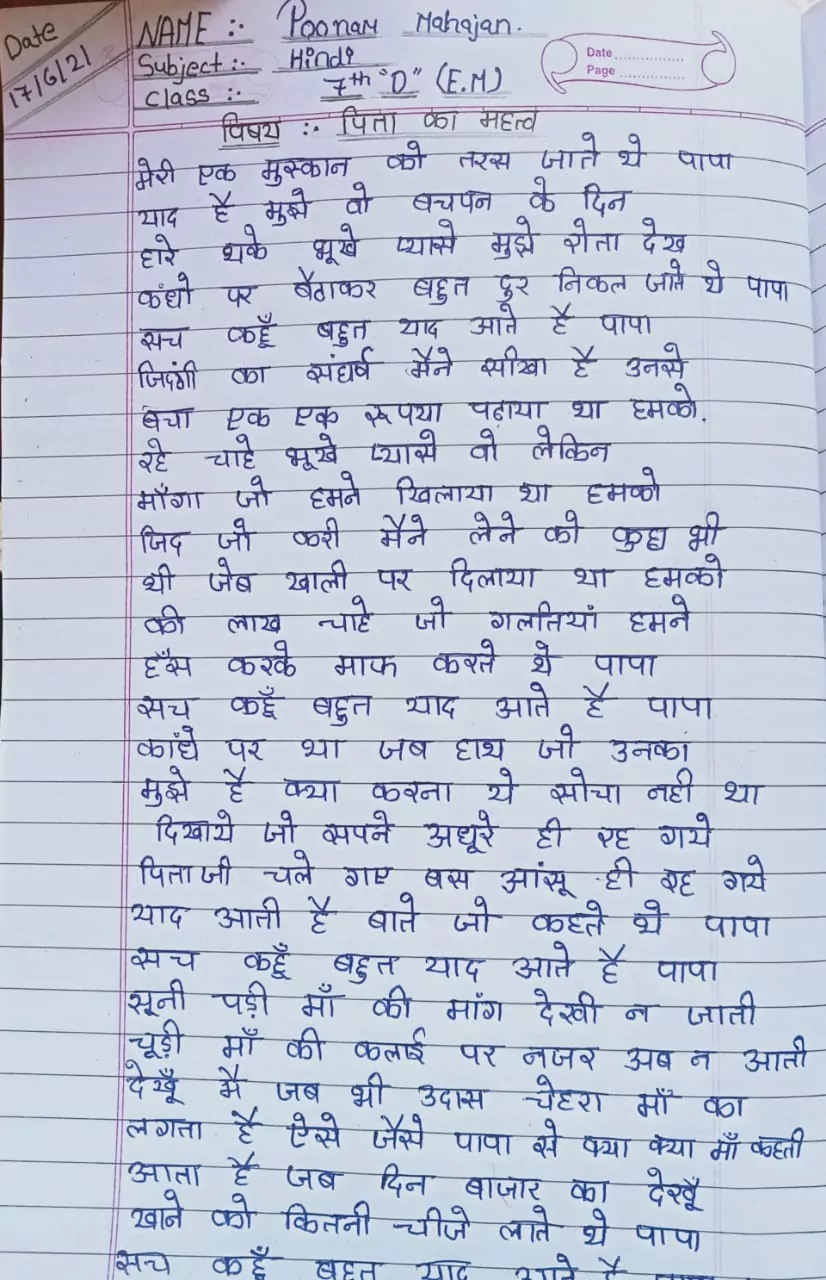 Date
17/6/21
NAME :- Poonam Mahajan.
Subject :- Hindi
Class :- 7th "D" (E.M)
Date ..............
Page ..............
विषय :- पिता का महत्व
मेरी एक मुस्कान को तरस जाते थे पापा
याद है मुझे वो बचपन के दिन
हारे थके भूखे प्यासे मुझे रोता देख
कंधो पर बैठाकर बहुत दुर निकल जाते थे पापा
सच कहूँ बहुत याद आते है पापा
जिदंगी का संघर्ष मैने सीखा है उनसे
बचा एक एक रूपया पढ़ाया था हमको.
रहे चाहे भूखे प्यासे वो लेकिन
माँगा जो हमने खिलाया था हमको
जिद जो करी मैने लेने को कुछ भी
थी जेब खाली पर दिलाया था हमको
की लाख चाहे जो गलतियां हमने
हँस करके माफ करते थे पापा
सच कहूँ बहुत याद आते है पापा
कांधे पर था जब हाथ जो उनका
मुझे है क्या करना ये सोचा नही था
दिखाये जो सपने अधूरे ही रह गये
पिताजी चले गए बस आंसू ही रह गये
याद आती है बाते जो कहते थे पापा
सच कहूँ बहुत याद आते है पापा
सूनी पड़ी माँ की मांग देखी न जाती
चूड़ी माँ की कलाई पर नजर अब न आती
देखूँ मै जब भी उदास चेहरा माँ का
लगता है ऐसे जैसे पापा से क्या क्या माँ कहती
आता है जब दिन बाजार का देखूँ
खाने को कितनी चीजे लाते थे पापा
सच कहूँ बहुत याद आते है